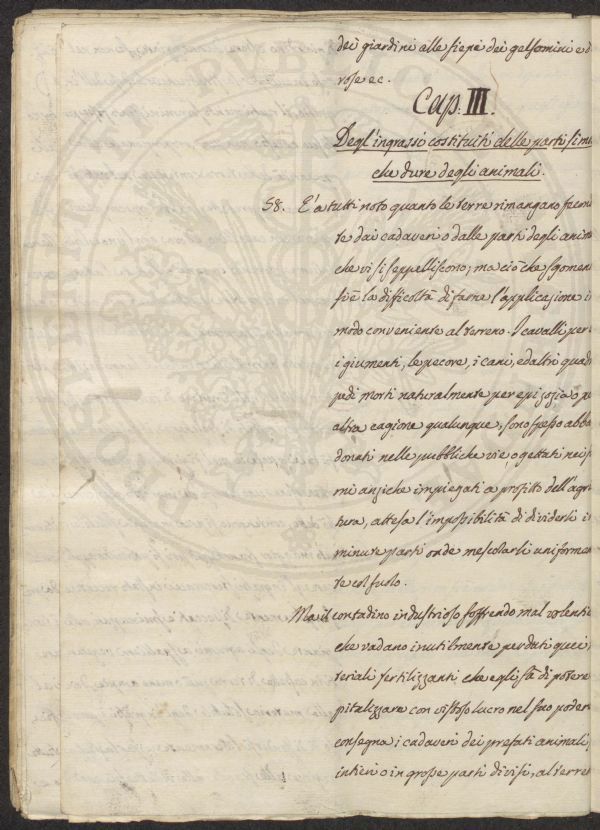 dei giardini alle siepi dei gelsomini e d
rose ec.
Cap: III.
Degl'ingrassi costituiti delle parti si
che dure degli animali.
58. E' a tutti noto quanto le terre rimangano fecon
te dai cadaveri o dalle parti degli anim
che vi si seppelliscono; ma ciò che sgomen
si è la difficoltà di farne l'applicazione i
modo conveniente al terreno. I cavalli per
i giumenti, le pecore, i cani, ed altri quadr
pedi morti naturalmente per epizozia o p
altra cagione qualunque, sono spesso abba
donati nelle pubbliche vie, o gettati nei f
mi anziche impiegati a profitto dell'agri
tura, attesa l'impossibilità di dividerli i
minute parti onde mescolarli uniforme
te col suolo.
Ma il contadino industrioso soffrendo mal volenti
che vadano inutilmente perduti quei
teriali fertilizzanti che egli sà di potere
pitalizzare con vistoso lucro nel suo poder
consegna i cadaveri dei prefati animali,
intieri o in grosse parti divisi, al terren